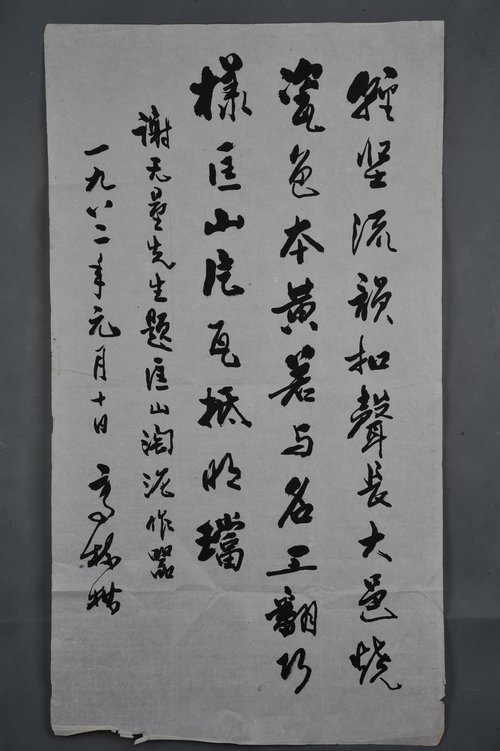 輕坚流韻扣聲長大邑烧
瓷色本黄若与名工翻巧
樣匡山片瓦抵明璫
谢无量先生题匡山淘泥作器
一九八二年元月十日 高